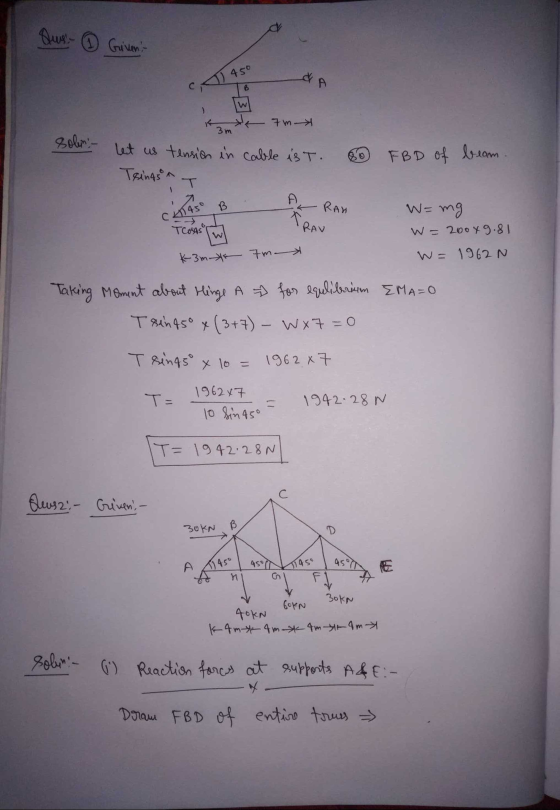 Ques:- ① Given:-
45°
C B A
W
3m 7m
Soln:- Let us tension in cable is T. FBD of beam.
Tsin45° T
C 45° B A RAH
Tcos45° W RAV
3m 7m
W = mg
W = 200×9.81
W = 1962 N
Taking Moment about Hinge A ⇒ for equlibrium ΣMA=0
T sin45° × (3+7) - W×7 = 0
T sin45° × 10 = 1962 × 7
T = 1962×7 / 10 sin45° = 1942.28 N
T = 1942.28N
Ques2:- Given:-
C
30KN B D
A 45° 45° 45° 45° E
H G F
40KN 60KN 30KN
4m 4m 4m 4m
Soln:- (i) Reaction forces at supports A & E:-
Draw FBD of entire truss ⇒